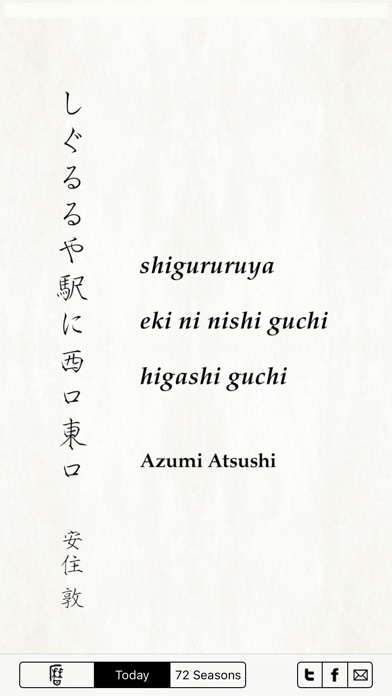 しぐるるや駅に西口東口
安住 敦
shigururuya
eki ni nishi guchi
higashi guchi
Azumi Atsushi
Today
72 Seasons